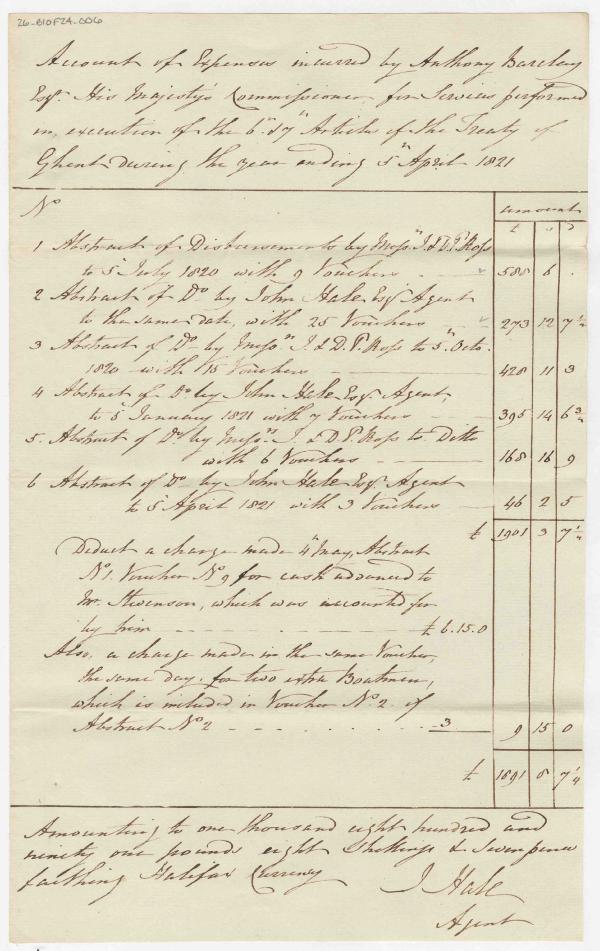 26-B10F24-006
Account of Expenses incurred by Anthony Barclay
Esqr. His Majesty's Commissioner for Services performed
in execution of the 6" & 7" Articles of the Treaty of
Ghent during the year ending 5" April 1821
No amount
£ s D
1 Abstract of Disbursements by Messrs. J. & D. P. Ross
to 5 July 1820 with 9 Vouchers - - 588 6 .
2 Abstract of Do by John Hale Esqr. Agent
to the same date, with 25 Vouchers - 273 12 7 1/2
3 Abstract of Do by Messrs. J. & D. P. Ross to 5" Octo.
1820 with 15 Vouchers - - - 428 11 3
4 Abstract of Do by John Hale Esqr. Agent
to 5 January 1821 with 7 Vouchers - - 395 14 6 3/4
5. Abstract of Do by Messrs. J. & D. P. Ross to Ditto
with 6 Vouchers - - - 168 16 9
6 Abstract of Do by John Hale Esqr. Agent
to 5 April 1821 with 3 Vouchers - 46 2 5
£ 1901 3 7 1/4
Deduct a charge made 4" May, Abstract
No 1. Voucher No 9 for cash advanced to
Mr. Stevenson, which was accounted for
by him - - - - - - £ 6.15.0
Also, a charge made in the same Voucher,
the same day, for two extra Boatmen,
which is included in Voucher No 2. of
Abstract No 2 - - - - - - 3 9 15 0
£ 1891 8 7 1/4
Amounting to one thousand eight hundred and
ninety one pounds eight Shillings & Sevenpence
farthing Halifax Currency
J Hale
Agent